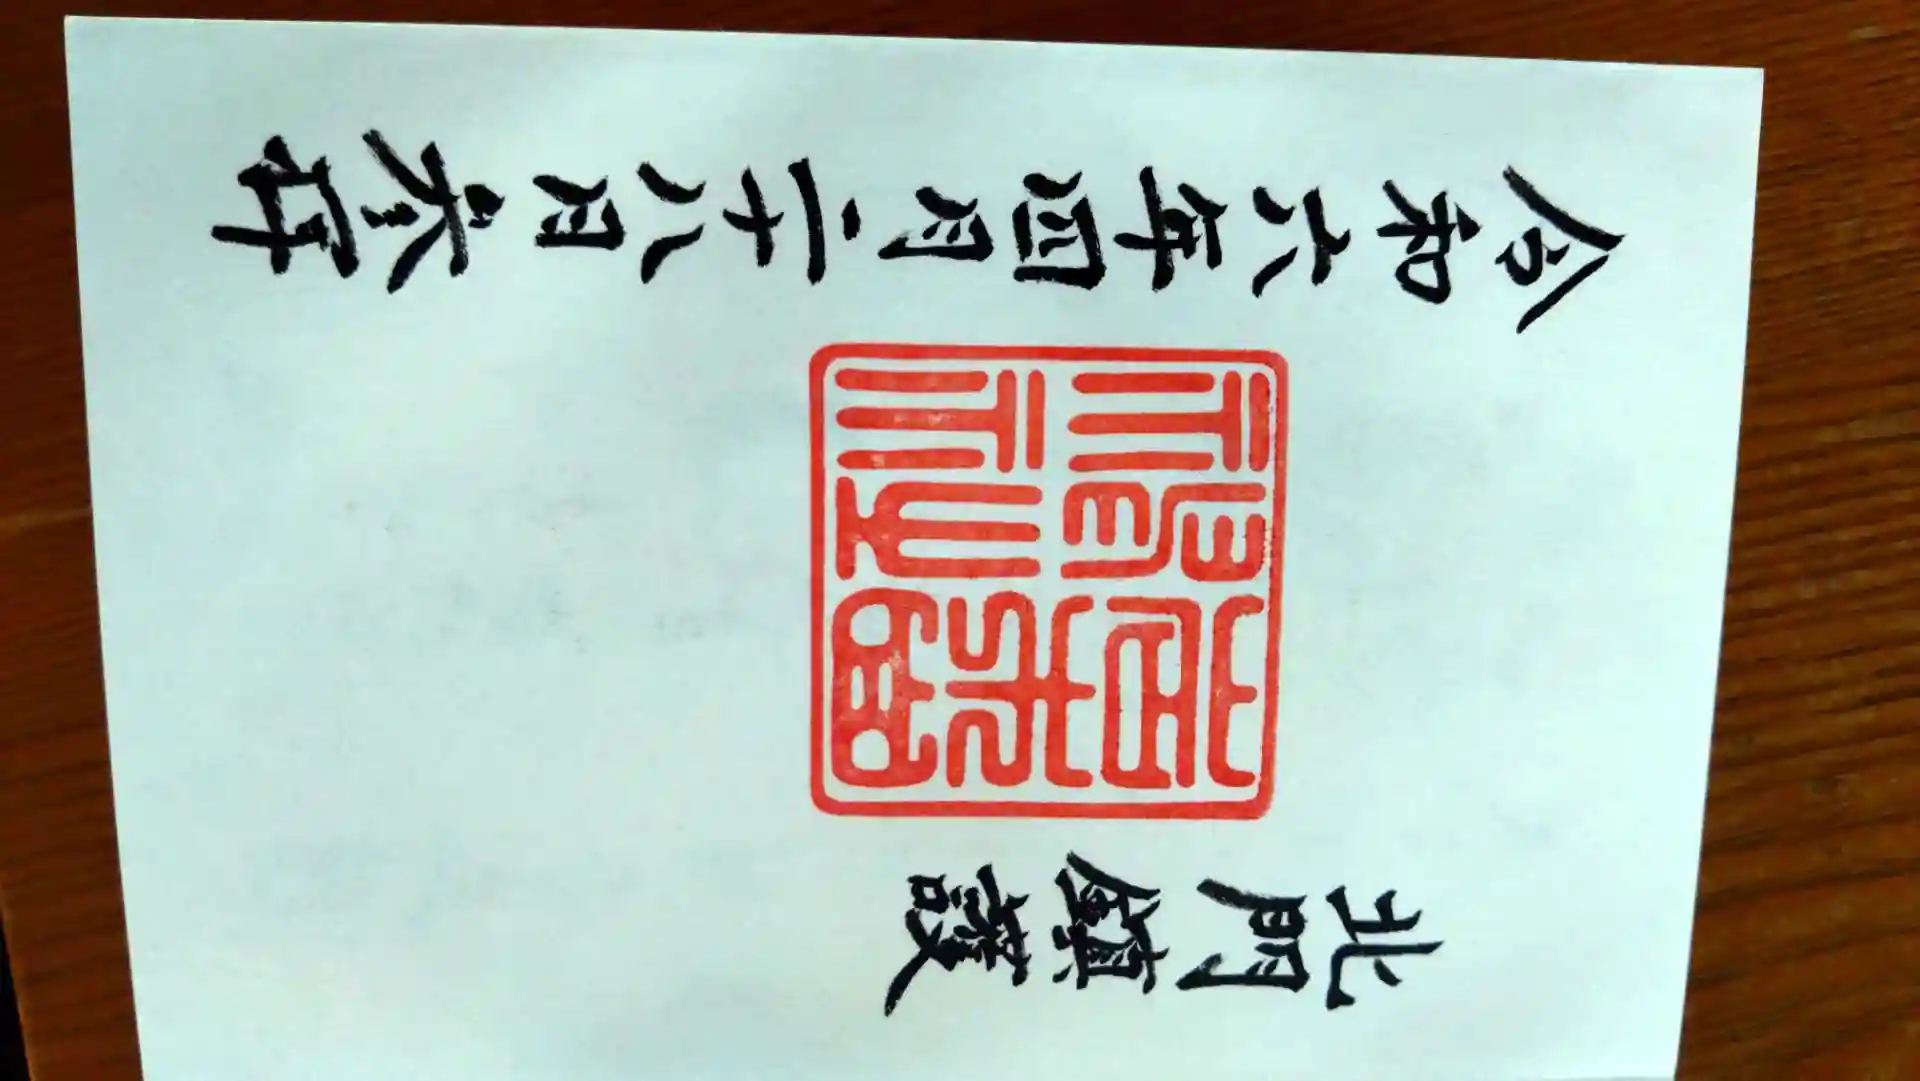 北門鎮護
令和六年四月二十八日奉拝